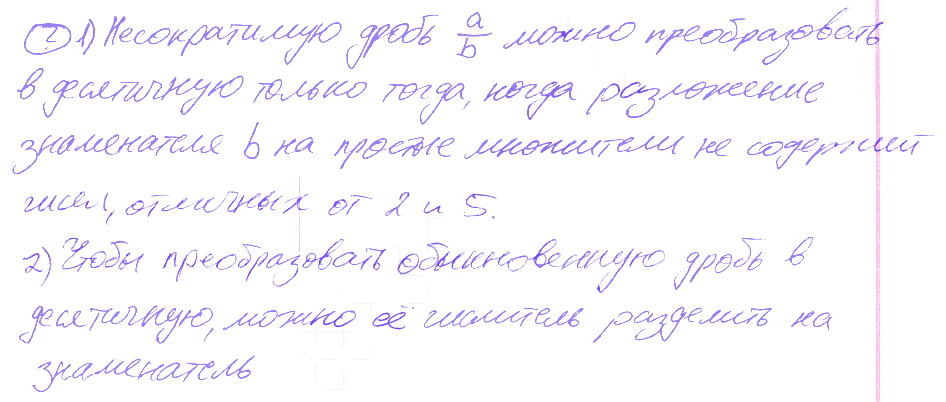 ② 1) Несократимую дробь a/b можно преобразовать
в десятичную только тогда, когда разложение
знаменателя b на простые множители не содержит
чисел, отличных от 2 и 5.
2) Чтобы преобразовать обыкновенную дробь в
десятичную, можно её числитель разделить на
знаменатель